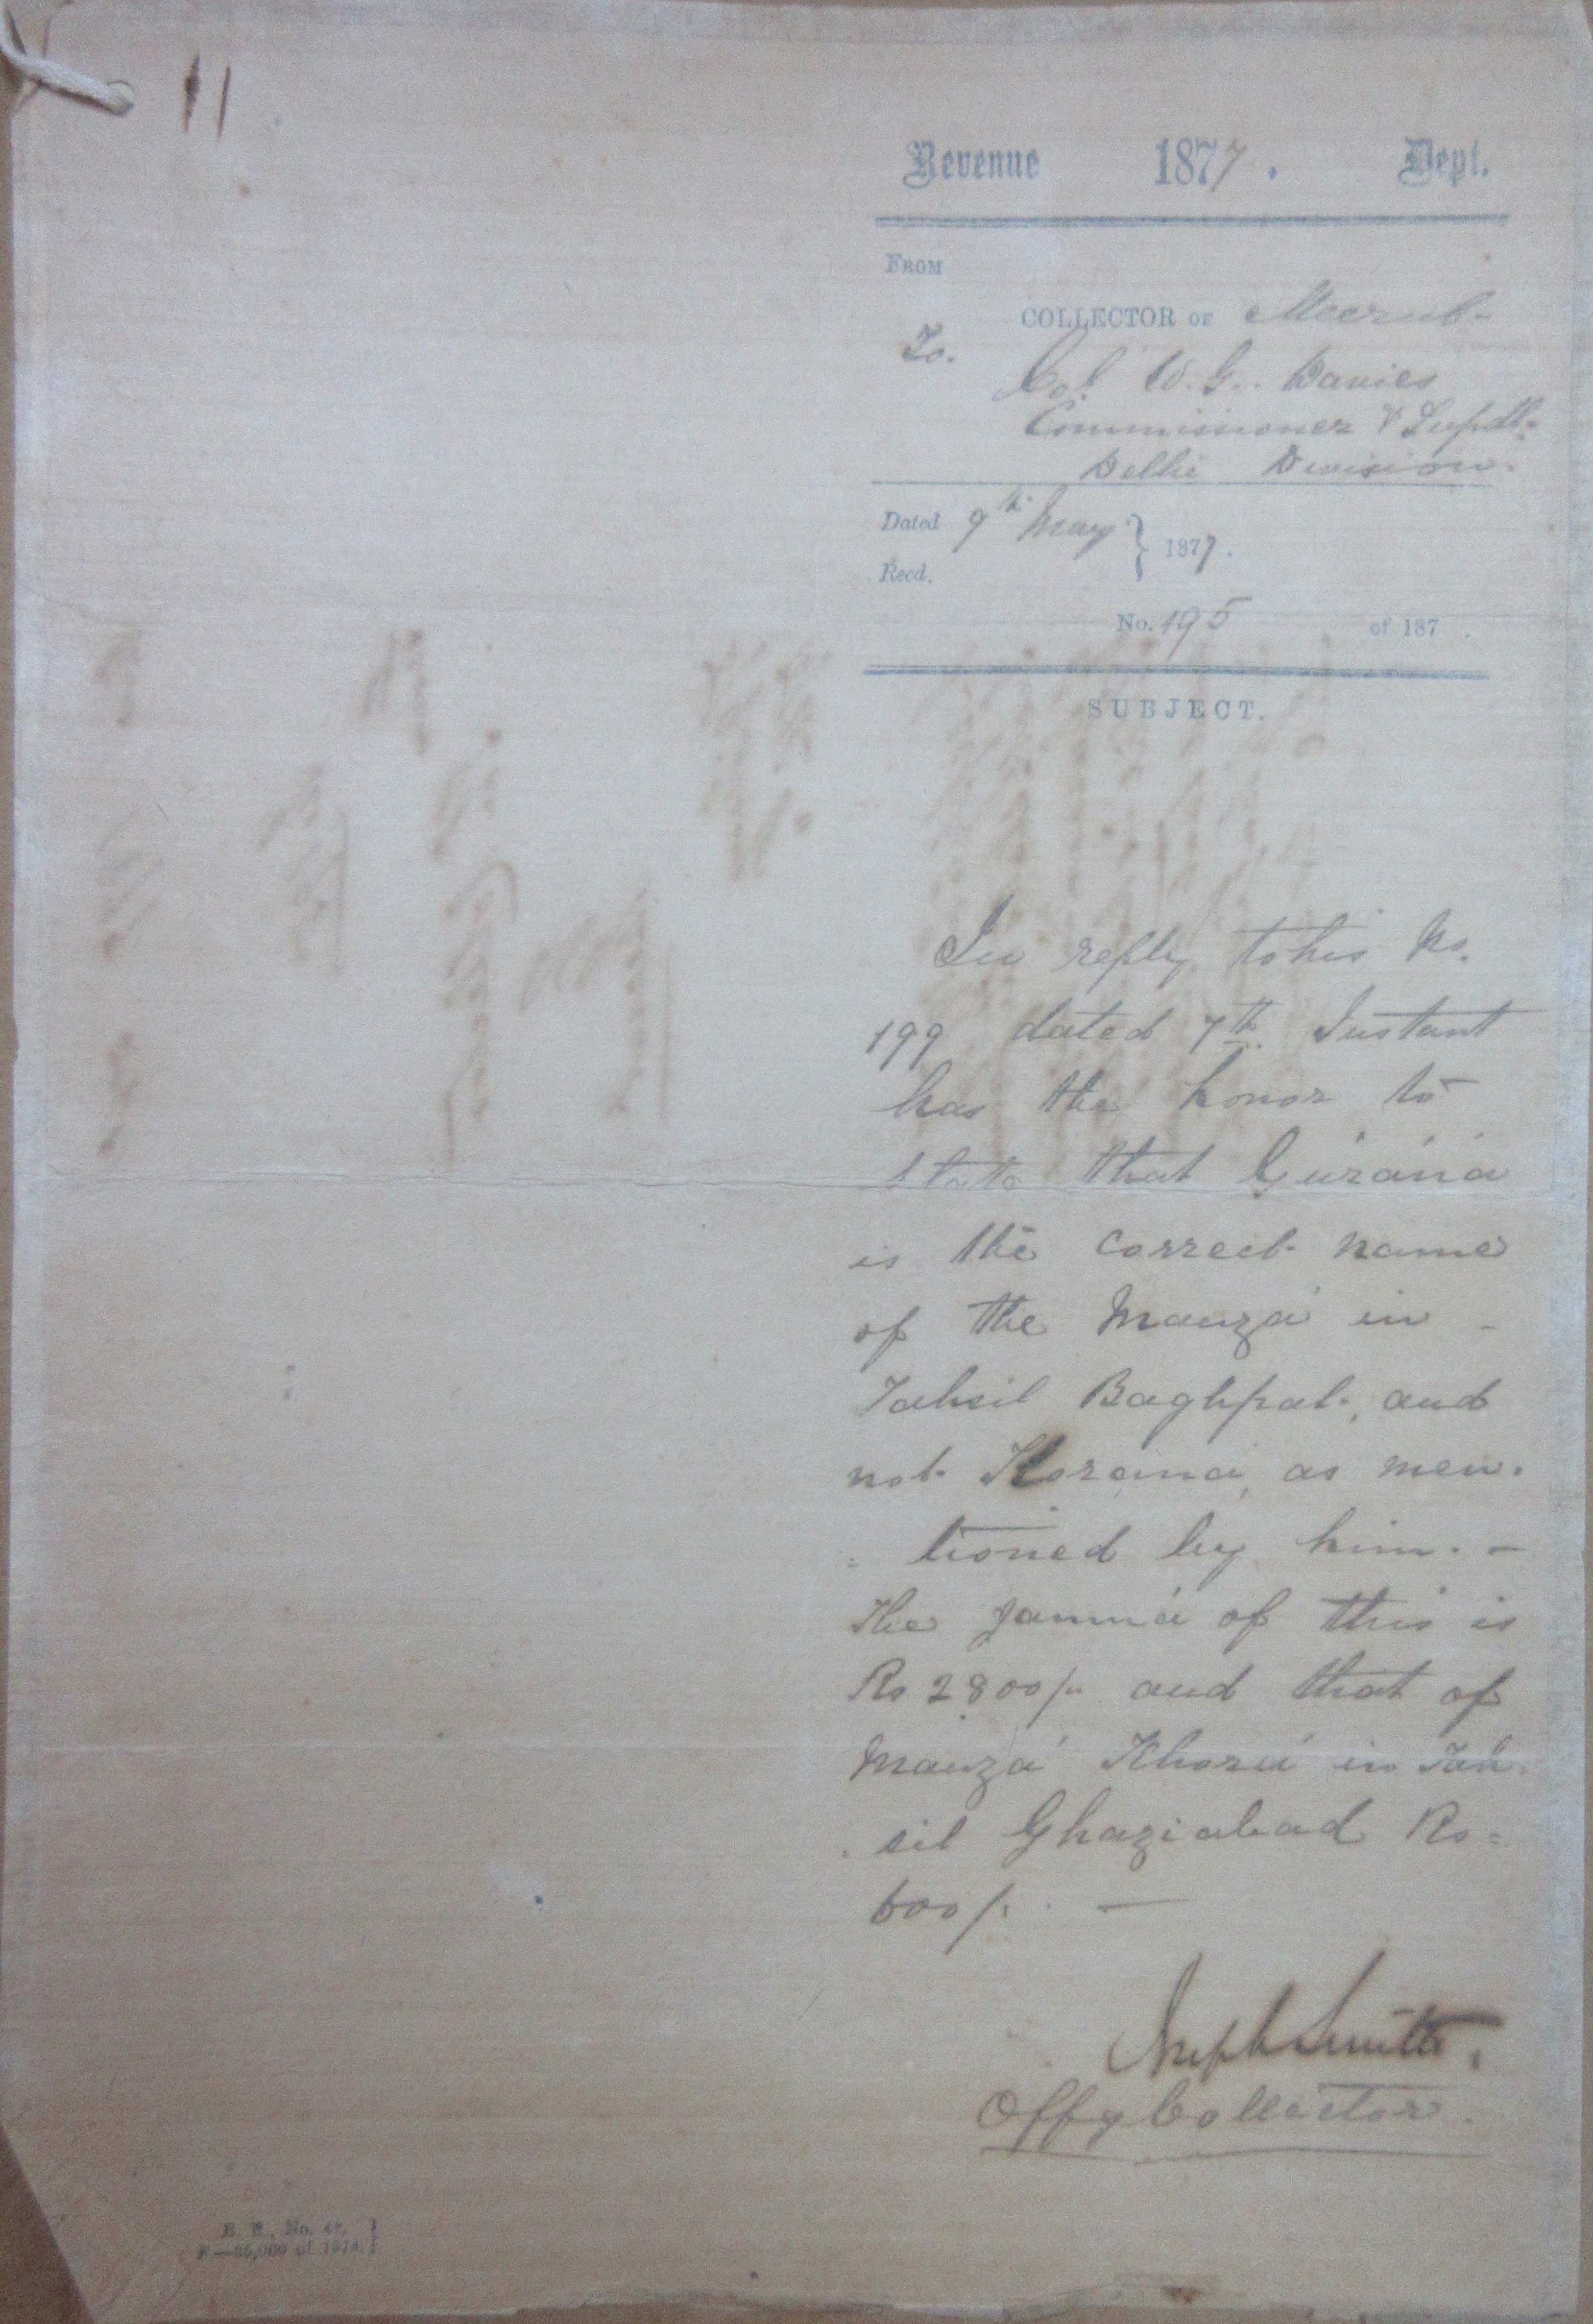 11
Revenue 1877. Dept.
FROM
COLLECTOR OF Meerut
To. Col. W. G. Davies
Commissioner & Supdt.
Delhi Division.
Dated 9th May } 1877.
Recd.
No. 195 of 187 .
SUBJECT.
In reply to his No.
199 dated 7th Instant
has the honor to
state that Gúráná
is the correct name
of the Mauzá in -
Tahsil Baghpat, and
not Korána, as men-
tioned by him. -
The Jammá of this is
Rs 2800/- and that of
Mauzá in Tah-
sil Ghaziabad Rs-
600/. —
Smith.
Offg Collector.